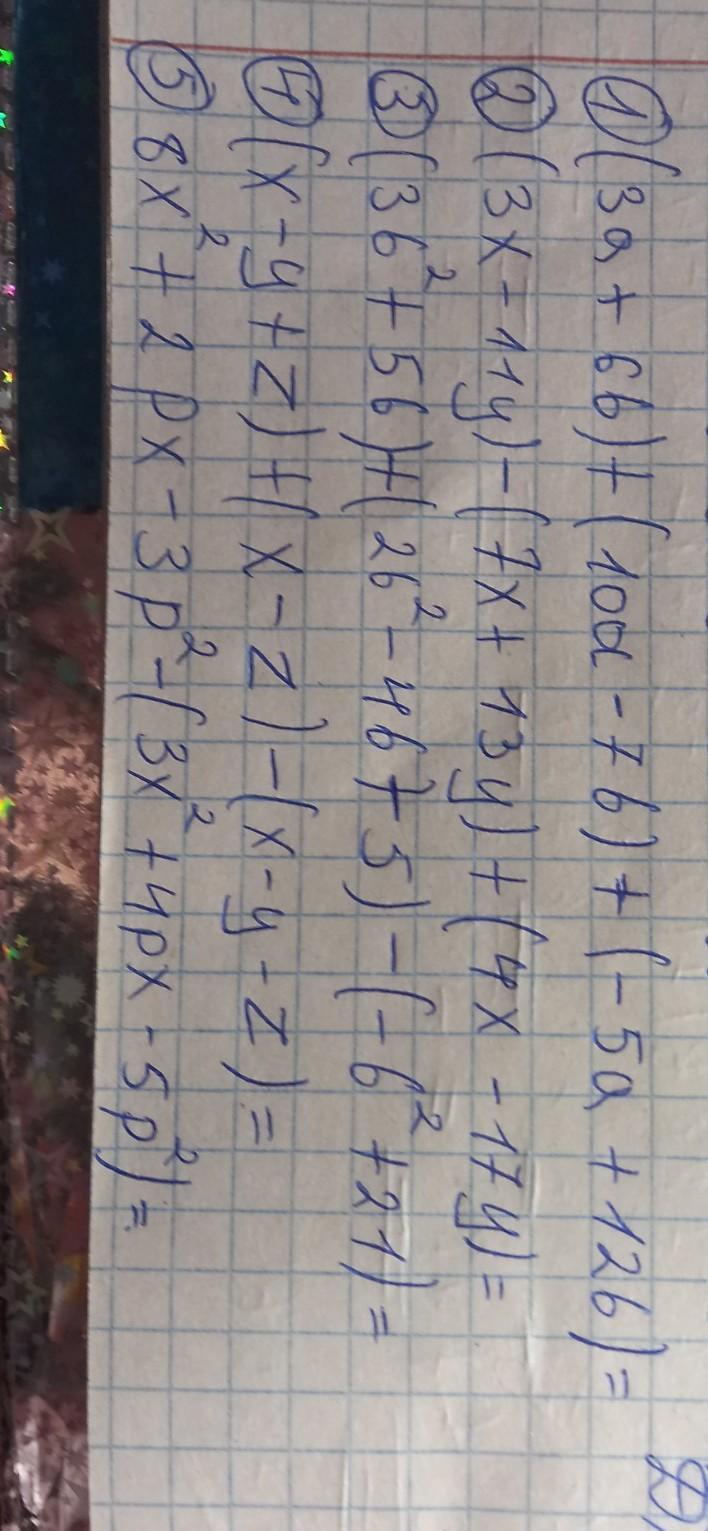 ① (3a + 6b) + (10a - 7b) + (-5a + 12b) =
② (3x - 11y) - (7x + 13y) + (4x - 17y) =
③ (3b² + 5b) + (2b² - 4b + 5) - (-b² + 21) =
④ (x - y + z) + (x - z) - (x - y - z) =
⑤ 8x² + 2px - 3p² - (3x² + 4px - 5p²) =